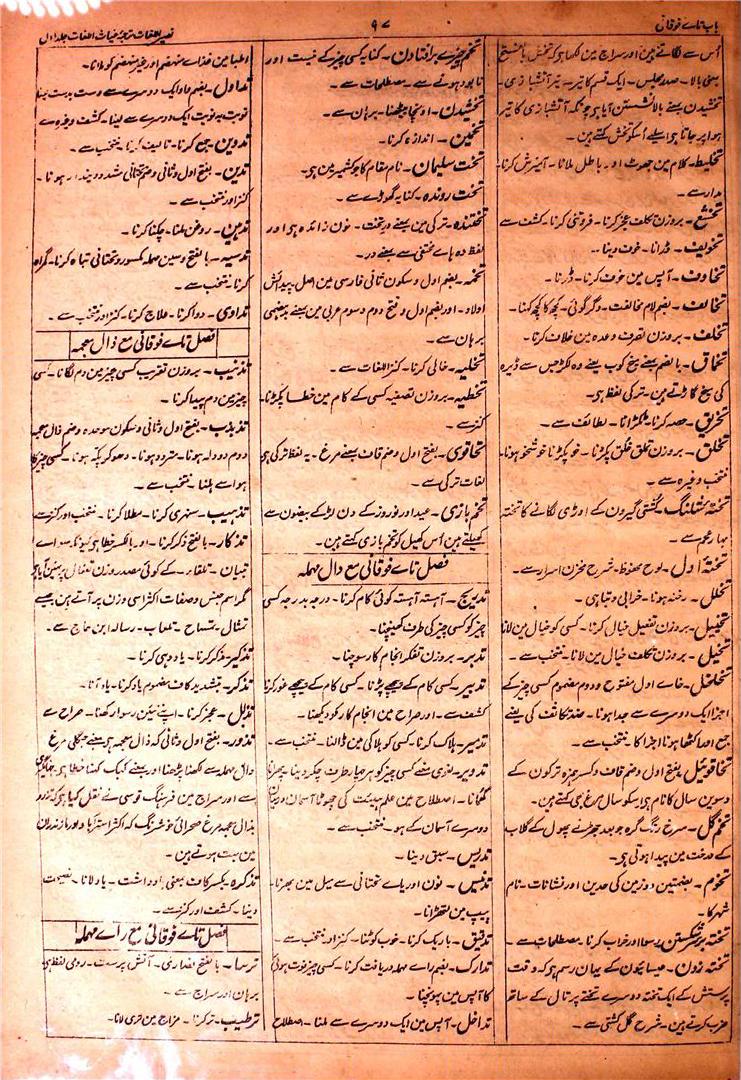 باب تاے فوقانی
۹۷
نصیر اللغات ترجمۂ غیاث اللغات جلد اول
اُس سے لگاتے ہین اور سراج مین لکھا ہی کہ تخش بالفتح
بمعنی بالا۔ صدر مجلس۔ ایک قسم کا تیر۔ تیر آتشبازی۔
تخشیدن بمعنے بالا نشستن آیا ہی چونکہ آتشبازی کا تیر
ہوا پر جاتا ہی اسلیے اُسکو تخش کہتے ہین۔
تخلیط۔ کلام مین جھوٹ اور باطل ملانا۔ آمیزش کرنا۔
مدار سے۔
تخشع۔ بروزن تکلف عجز کرنا۔ فروتنی کرنا۔ کشف سے
تخویف۔ ڈرانا۔ خوف دینا۔
تخاوف۔ آپس مین خوف کرنا۔ ڈرنا۔
تخالف۔ بضم لام مخالفت۔ دگرگوئی۔ کچھ کا کچھ کہنا۔
تخلف۔ بروزن تصرف وعدہ مین خلاف کرنا۔
تخماق۔ بالضم بمعنے میخ کوب یعنے وہ لکڑی جس سے ڈیرہ
کی میخ گاڑتے ہین۔ ترکی لفظ ہی۔
تخریق۔ صدمہ کرنا۔ ٹکڑانا۔ لطائف سے۔
تخلق۔ بروزن تعلق خلق پکڑنا۔ خو پکڑنا خوشخو ہونا۔
منتخب وغیرہ سے۔
تختۂ شلنگ۔ کشتی گیرون کے اوڑی لگانے کا تختہ
بہار عجم سے۔
تختۂ اول۔ لوح محفوظ۔ شرح مخزن اسرار سے۔
تخلل۔ رخنہ ہونا۔ خرابی و تباہی۔
تخییل۔ بروزن تفعیل خیال کرنا۔ کسی کو خیال مین لانا
تخیل۔ بروزن تکلف خیال مین لانا۔ منتخب سے۔
تخلخل۔ خاے اول مفتوح و دوم مضموم کسی چیز کے
اجزا ایک دوسرے سے جدا ہونا۔ ضد تکاثف کی یعنے
جمع اور اکٹھا ہونا اجزا کا۔ منتخب سے۔
تخاقوئیل۔ بفتح اول وضم قاف وکسر ہمزہ ترکون کے
دسوین سال کا نام ہی اسکو سال مرغ بھی کہتے ہین۔
تخم گل۔ سرخ رنگ گرہ جو بعد جھڑنے پھول کے گلاب
کے درخت مین پیدا ہوتی ہی۔
تخوم۔ بضمتین دو زمین کی حدین اور نشانات۔ نام
شہر کا۔
تختہ بر سر شکستن۔ رسوا اور خراب کرنا۔ مصطلحات سے۔
تختہ زدن۔ عیسائیون کے یہان رسم ہی کہ وقت
پرستش کے ایک تختہ دوسرے تختے پر تال کے ساتھ
ضرب کرتے ہین۔ شرح گل کشتی سے۔
تخم چیزے برافتادن۔ کنایہ کسی چیز کے نیست اور
نابود ہونے سے۔ مصطلحات سے۔
تخشیدن۔ اونچا بیٹھنا۔ برہان سے۔
تخمین۔ اندازہ کرنا۔
تخت سلیمان۔ نام مقام کا جو کشمیر مین ہی۔
تخت روندہ۔ کنایہ گھوڑے سے۔
تختندہ۔ ترکی مین بمعنے درتخت۔ نون زائدہ ہی اور
لفظ دہ ہاے مختفی سے بمعنے در۔
تخمہ۔ بضم اول و سکون ثانی فارسی مین اصل پیدائش
اولاد۔ اور بضم اول و فتح دوم و سوم عربی مین بمعنے بدہضمی
برہان سے۔
تخلیہ۔ خالی کرنا۔ کنز اللغات سے۔
تخطیہ۔ بروزن تصفیہ کسی کے کام مین خطا پکڑنا۔
کنز سے۔
تخاقوی۔ بفتح اول وضم قاف بمعنے مرغ۔ یہ لفظ ترکی ہی
لغات ترکی سے۔
تخم بازی۔ عید اور نوروز کے دن لڑکے بیضون سے
کھیلتے ہین اُس کھیل کو تخم بازی کہتے ہین۔
فصل تاے فوقانی مع دال مہملہ
تدریج۔ آہستہ آہستہ کوئی کام کرنا۔ درجہ بدرجہ کسی
چیز کو کسی چیز کی طرف کھینچنا۔
تدبر۔ بروزن تفکر انجام کار سوچنا۔
تدبیر۔ کسی کام کے پیچھے پڑنا۔ کسی کام کے پیچھے غور کرنا
کشف سے۔ اور صراح مین انجام کار کو دیکھنا۔
تدمیر۔ ہلاک کرنا۔ کسی کو ہلاکی مین ڈالنا۔ منتخب سے۔
تدویر۔ لغوی معنے کسی چیز کو ہر چہار طرف چکر دینا پھرانا
گھمانا۔ اصطلاح مین علم ہیئت کی چھوٹا آسمان درمیان
دوسرے آسمان کے ہو۔ منتخب سے۔
تدریس۔ سبق دینا۔
تدنیس۔ نون اور یاے تحتانی سے میل مین بھرنا۔
پیپ مین لتھڑانا۔
تدقیق۔ باریک کرنا۔ خوب کوٹنا۔ کنز اور منتخب سے۔
تدارک۔ بضم راے مہملہ دریافت کرنا۔ کسی چیز فوت ہوئی
کا آپس مین پہونچنا۔
تداخل۔ آپس مین ایک دوسرے سے ملنا۔ اصطلاح
اطبا مین غذاے منہضم اور غیر منہضم کو ملانا۔
تداول۔ بضم واو ایک دوسرے سے دست بدست لینا
نوبت بہ نوبت ایک دوسرے سے لینا۔ کشف وغیرہ سے
تدوین۔ جمع کرنا۔ تالیف کرنا۔ منتخب سے۔
تدین۔ بفتح اول وثانی وضم تحتانی مشدد دیندار ہونا۔
کنز اور منتخب سے۔
تدہین۔ روغن ملنا۔ چکنا کرنا۔
تدسیہ۔ بالفتح وسین مہملہ مکسور و تحتانی تباہ کرنا۔ گمراہ
کرنا۔ منتخب سے۔
تداوی۔ دوا کرنا۔ علاج کرنا۔ کنز اور منتخب سے۔
فصل تاے فوقانی مع ذال معجمہ
تذنیب۔ بروزن تقریب کسی چیز مین دم لگانا۔ کسی
چیز مین دم پیدا کرنا۔
تذبذب۔ بفتح اول وثانی وسکون موحدہ وضم ذال معجمہ
دوم دو دلہ ہونا۔ متردد ہونا۔ دھکڑ پکڑ ہونا۔ کسی چیز کا
ہوا سے ہلنا۔ منتخب سے۔
تذہیب۔ سنہری کرنا۔ مطلا کرنا۔ منتخب اور کنز سے
تذکار۔ بالفتح ذکر کرنا۔ اور بالکسر خطا ہی کیونکہ سوا اے
تبیان۔ تلقاء۔ کے کوئی مصدر وزن تفعال پر نہین آیا ہی
مگر اسم جنس وصفات اکثر اسی وزن پر آتے ہین جیسے
تمثال۔ تمساح۔ تلعاب۔ رسالہ ابن حاج سے۔
تذکیر۔ ذکر کرنا۔ یاد وہی کرنا۔
تذکر۔ بتشدید کاف مضموم یاد کرنا۔ یاد آنا۔
تذلل۔ عجز کرنا۔ اپنے تئین رسوا رکھنا۔ صراح سے
تذرو۔ بفتح اول وثانی کہ ذال معجمہ ہی بمعنے جنگلی مرغ
دال مہملہ سے لکھنا پڑھنا اور بمعنے کبک کہنا خطا ہی جہانگیری
سے اور سراج مین فرہنگ قوسی سے نقل کیا ہی کہ تذرو
بذال معجمہ مرغ صحرائی خوش رنگ کہ اکثر استرآباد اور مازندران
مین بہت ہوتے ہین۔
تذکرہ۔ بکسر کاف بمعنی یادداشت۔ یاد لانا۔ نصیحت
دینا۔ کشف اور کنز سے۔
فصل تاے فوقانی مع راے مہملہ
ترسا۔ بالفتح نصاری۔ آتش پرست۔ رومی لفظ ہی
برہان اور سراج سے۔
ترطیب۔ تر کرنا۔ مزاج مین تری لانا۔